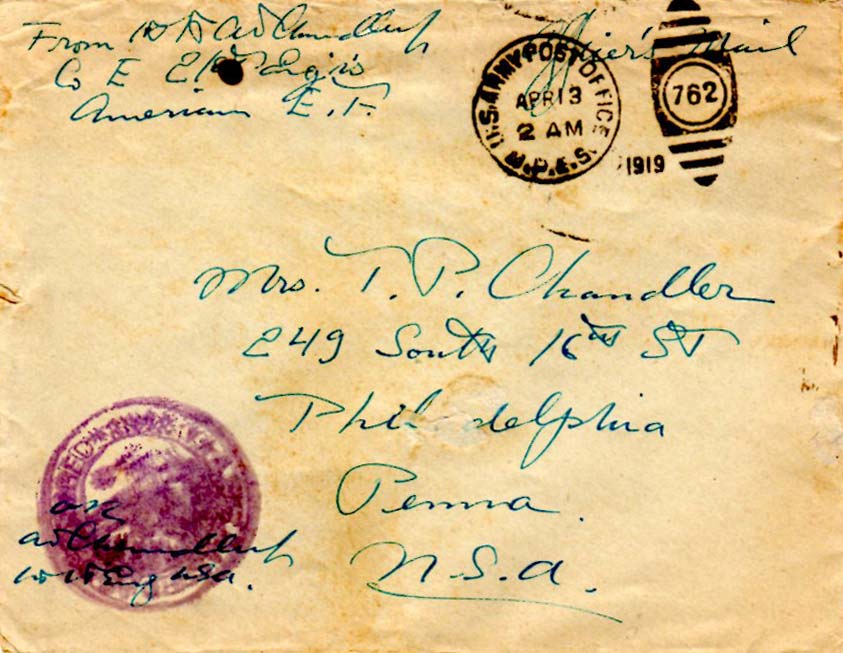 From 1st Lt A D Chandler
Co E 21st Eng'rs
American E. F.
Officer's Mail
U.S. ARMY POST OFFICE
APR 13
2 AM
M.P.E.S.
1919
762
Mrs. T. P. Chandler
249 South 16th St
Philadelphia
Penna.
U.S.A.
OK
A D Chandler
1st Lt Eng USA.